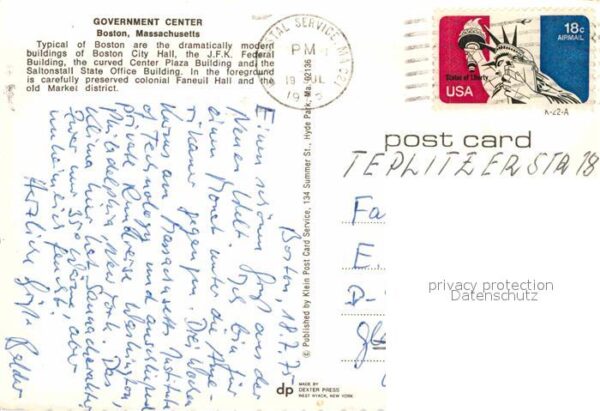 GOVERNMENT CENTER
Boston, Massachusetts
Typical of Boston are the dramatically modern
buildings of Boston City Hall, the J.F.K. Federal
Building, the curved Center Plaza Building and the
Saltonstall State Office Building. In the foreground
is carefully preserved colonial Faneuil Hall and the
old Market district.
POSTAL SERVICE MA 021
PM
19 JUL
19
18c
AIRMAIL
Statue of Liberty
USA
K-22-A
post card
TEPLITZERSTR 18
Boston, 18.7.75
Einen schönen Gruß aus der
Neuen Welt. Ich bin für
einen Monat unter die Ame-
rikaner gegangen. Drei Wochen
Kurs am Massachusetts Institute
of Technology und anschließend
private Rundreise Washington,
Philadelphia, New York. Das
Klima hier hat Saunacharakter
zwar nur 35° warm, aber
unheimlich feucht.
Herzliche Grüße
© Published by Klein Post Card Service, 134 Summer St., Hyde Park, Ma. 02136
dp
MADE BY
DEXTER PRESS
WEST NYACK, NEW YORK
Fa
E.
D-
privacy protection
Datenschutz